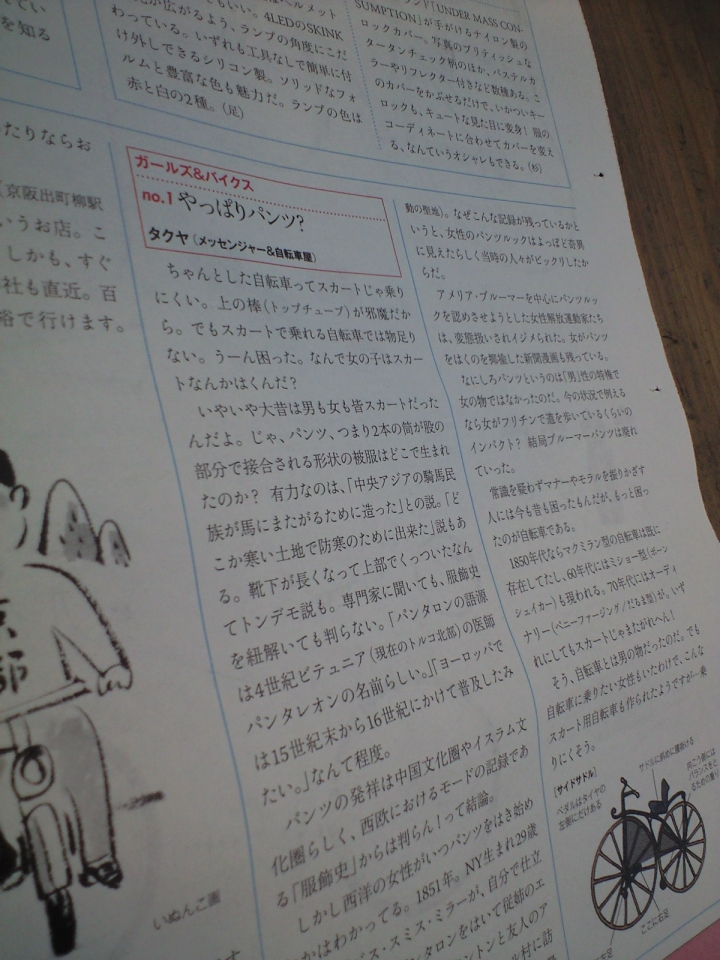 を知る
たりならお
京阪出町柳駅
いうお店。こ
しかも、すぐ
社も直近。百
で行けます。
が広がるよう、ランプの角度にこだ
わっている。いずれも工具なしで簡単に付
け外しできるシリコン製。ソリッドなフォ
ルムと豊富な色も魅力だ。ランプの色は
赤と白の2種。(足)
SUMPTION」が手がけるナイロン製の
ロックカバー。写真のブリティッシュな
タータンチェック柄のほか、パステルカ
ラーやリフレクター付きなど数種ある。こ
のカバーをかぶせるだけで、いかついキー
ロックも、キュートな見た目に変身! 服の
コーディネートに合わせてカバーを変え
る、なんていうオシャレもできる。(杉)
ガールズ&バイクス
no.1 やっぱりパンツ?
タクヤ(メッセンジャー&自転車屋)
ちゃんとした自転車ってスカートじゃ乗り
にくい。上の棒(トップチューブ)が邪魔だか
ら。でもスカートで乗れる自転車では物足り
ない。うーん困った。なんで女の子はスカー
トなんかはくんだ?
いやいや大昔は男も女も皆スカートだった
んだよ。じゃ、パンツ、つまり2本の筒が股の
部分で接合される形状の被服はどこで生まれ
たのか? 有力なのは、「中央アジアの騎馬民
族が馬にまたがるために造った」との説。「ど
こか寒い土地で防寒のために出来た」説もあ
る。靴下が長くなって上部でくっついたなん
てトンデモ説も。専門家に聞いても、服飾史
を紐解いても判らない。「パンタロンの語源
は4世紀ビテュニア(現在のトルコ北部)の医師
パンタレオンの名前らしい。」「ヨーロッパで
は15世紀末から16世紀にかけて普及したみ
たい。」なんて程度。
パンツの発祥は中国文化圏やイスラム文
化圏らしく、西欧におけるモードの記録であ
る「服飾史」からは判らん!って結論。
しかし西洋の女性がいつパンツをはき始め
かはわかってる。1851年。NY生まれ29歳
ス・スミス・ミラーが、自分で仕立
ンタロンをはいて従姉のエ
ントンと友人のア
動の聖地)。なぜこんな記録が残っているかと
いうと、女性のパンツルックはよっぽど奇異
に見えたらしく当時の人々がビックリしたか
らだ。
アメリア・ブルーマーを中心にパンツルッ
クを認めさせようとした女性解放運動家たち
は、変態扱いされイジメられた。女がパンツ
をはくのを揶揄した新聞漫画も残っている。
なにしろパンツというのは「男」性の特権で
女の物ではなかったのだ。今の状況で例える
なら女がフリチンで道を歩いているくらいの
インパクト? 結局ブルーマーパンツは廃れ
ていった。
常識を疑わずマナーやモラルを振りかざす
人には今も昔も困ったもんだが、もっと困っ
たのが自転車である。
1850年代ならマクミラン型の自転車は既に
存在してたし、60年代にはミショー型(ボーン
シェイカー)も現われる。70年代にはオーディ
ナリー(ペニーファージング/だるま型)が。いず
れにしてもスカートじゃまたがれへん!
そう、自転車とは男の物だったのだ。でも
自転車に乗りたい女性もいたわけで、こんな
スカート用自転車も作られたようですが…乗
りにくそう。
[サイドサドル]
ペダルはタイヤの
左側にだけある
サドルに斜めに腰掛ける
ここに右足
いぬんこ画